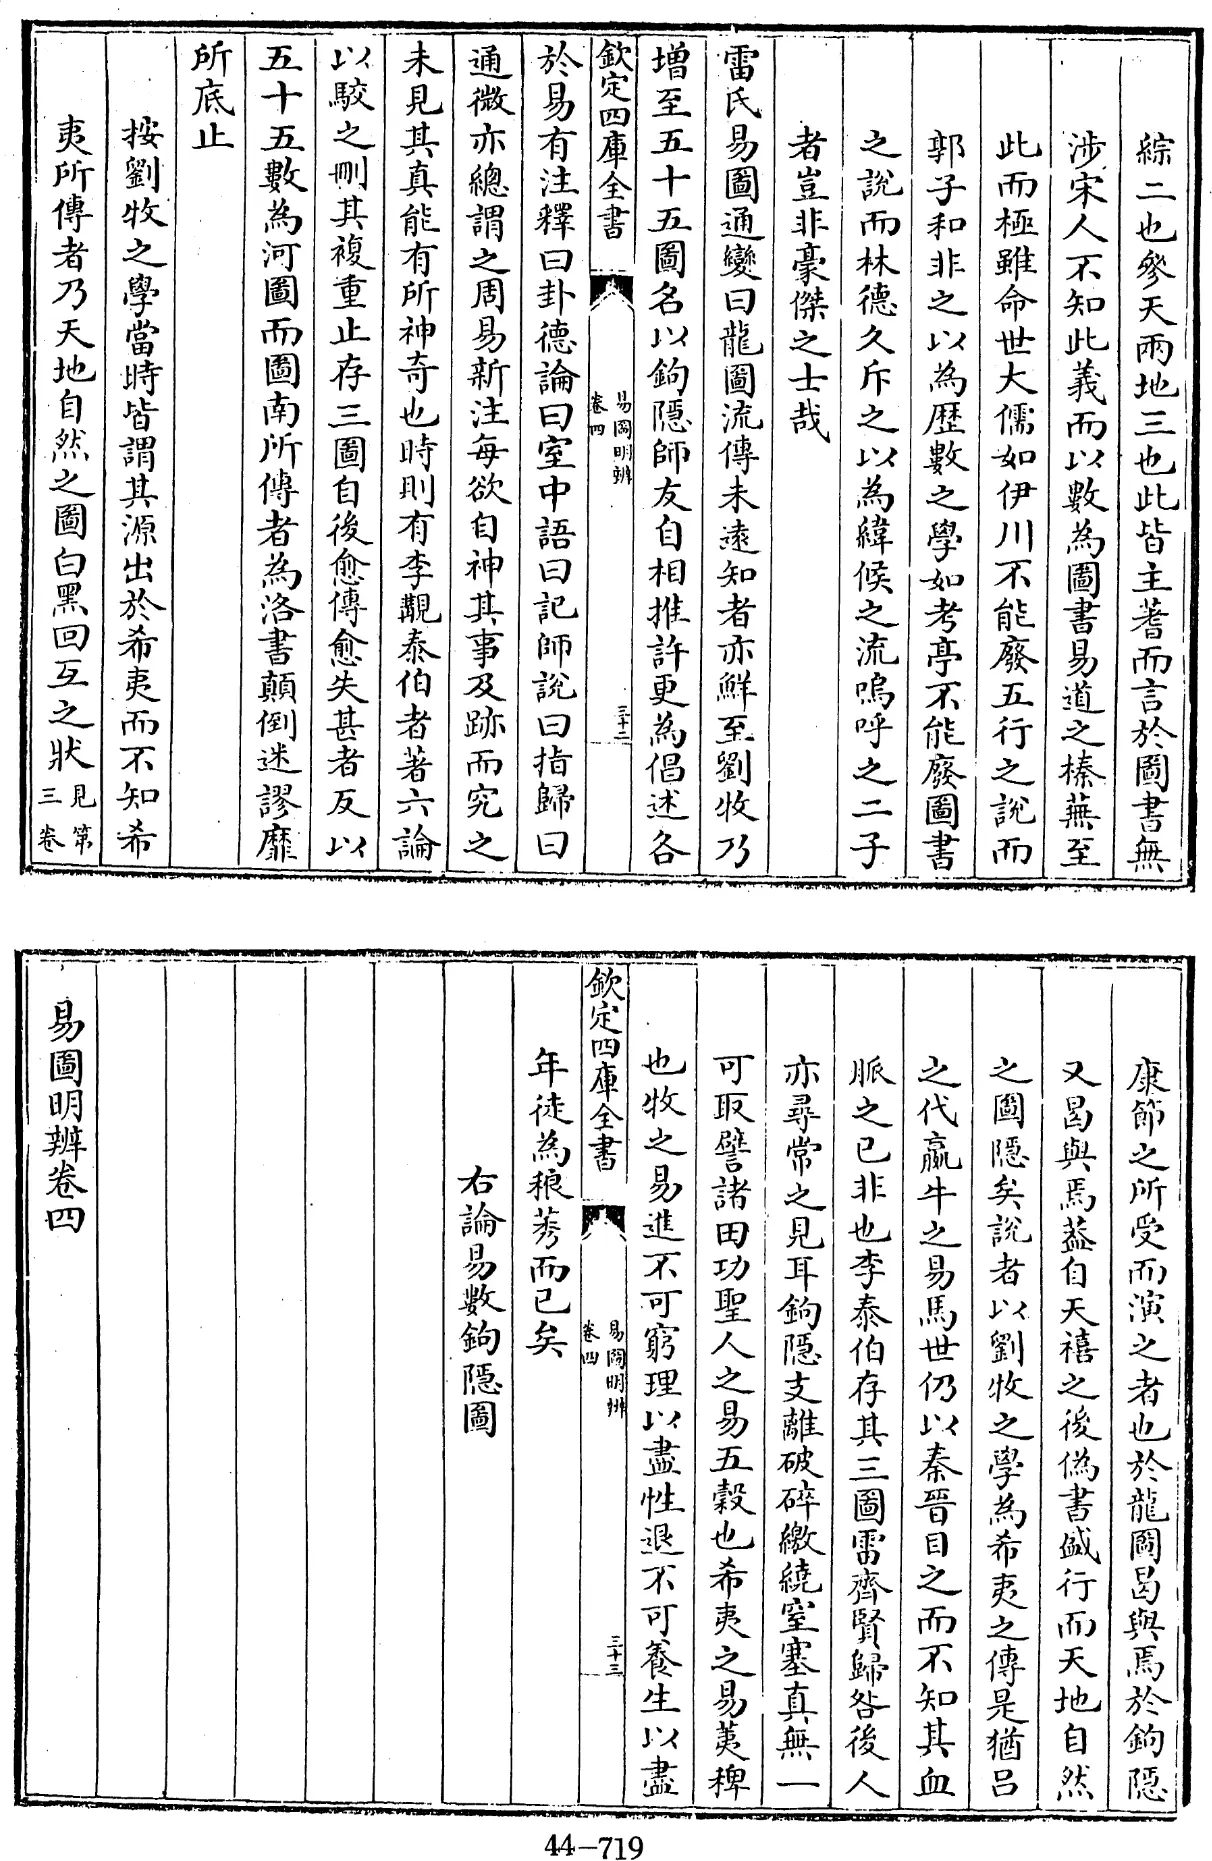 綜二也參天兩地三也此皆主蓍而言於圖書無
涉宋人不知此義而以數為圖書易道之榛蕪至
此而極雖命世大儒如伊川不能廢五行之說而
郭子和非之以為歷數之學如考亭不能廢圖書
之說而林德久斥之以為緯候之流嗚呼之二子
者豈非豪傑之士哉
雷氏易圖通變曰龍圖流傳未遠知者亦鮮至劉牧乃
增至五十五圖名以鉤隱師友自相推許更為倡述各
欽定四庫全書
易圖明辨
卷四
三十二
於易有注釋曰卦德論曰室中語曰記師說曰指歸曰
通微亦總謂之周易新注每欲自神其事及跡而究之
未見其真能有所神奇也時則有李覯泰伯者著六論
以駮之刪其複重止存三圖自後愈傳愈失甚者反以
五十五數為河圖而圖南所傳者為洛書顛倒迷謬靡
所底止
按劉牧之學當時皆謂其源出於希夷而不知希
夷所傳者乃天地自然之圖白黑回互之狀見第三卷
康節之所受而演之者也於龍圖曷與焉於鉤隱
又曷與焉蓋自天禧之後偽書盛行而天地自然
之圖隱矣說者以劉牧之學為希夷之傳是猶呂
之代嬴牛之易馬世仍以秦晉目之而不知其血
脈之已非也李泰伯存其三圖雷齊賢歸咎後人
亦尋常之見耳鉤隱支離破碎繳繞窒塞真無一
可取譬諸田功聖人之易五穀也希夷之易荑稗
也牧之易進不可窮理以盡性退不可養生以盡
欽定四庫全書
易圖明辨
卷四
三十三
年徒為稂莠而已矣
右論易數鉤隱圖
易圖明辨卷四
44-719